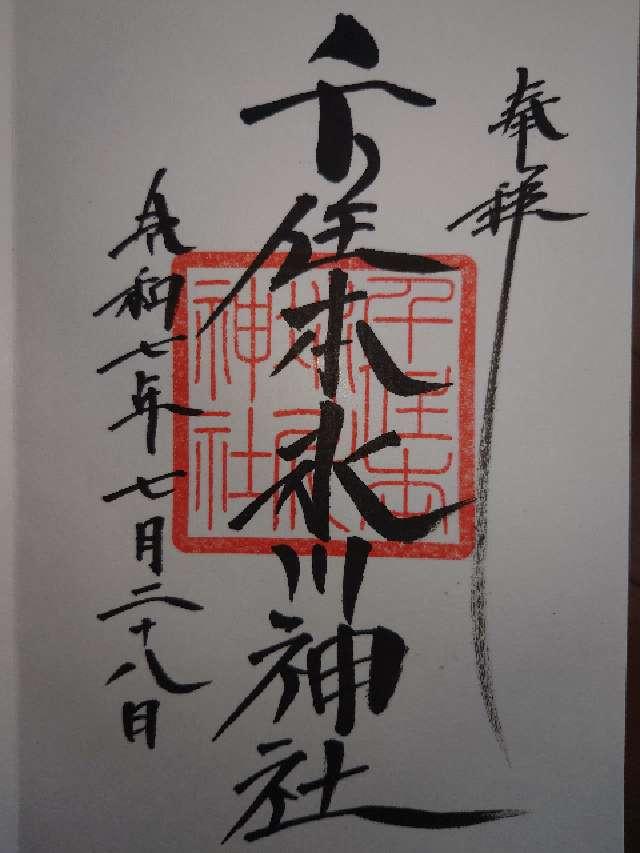 奉拝
千住本氷川神社
令和七年七月二十八日
千住本
氷川
神社